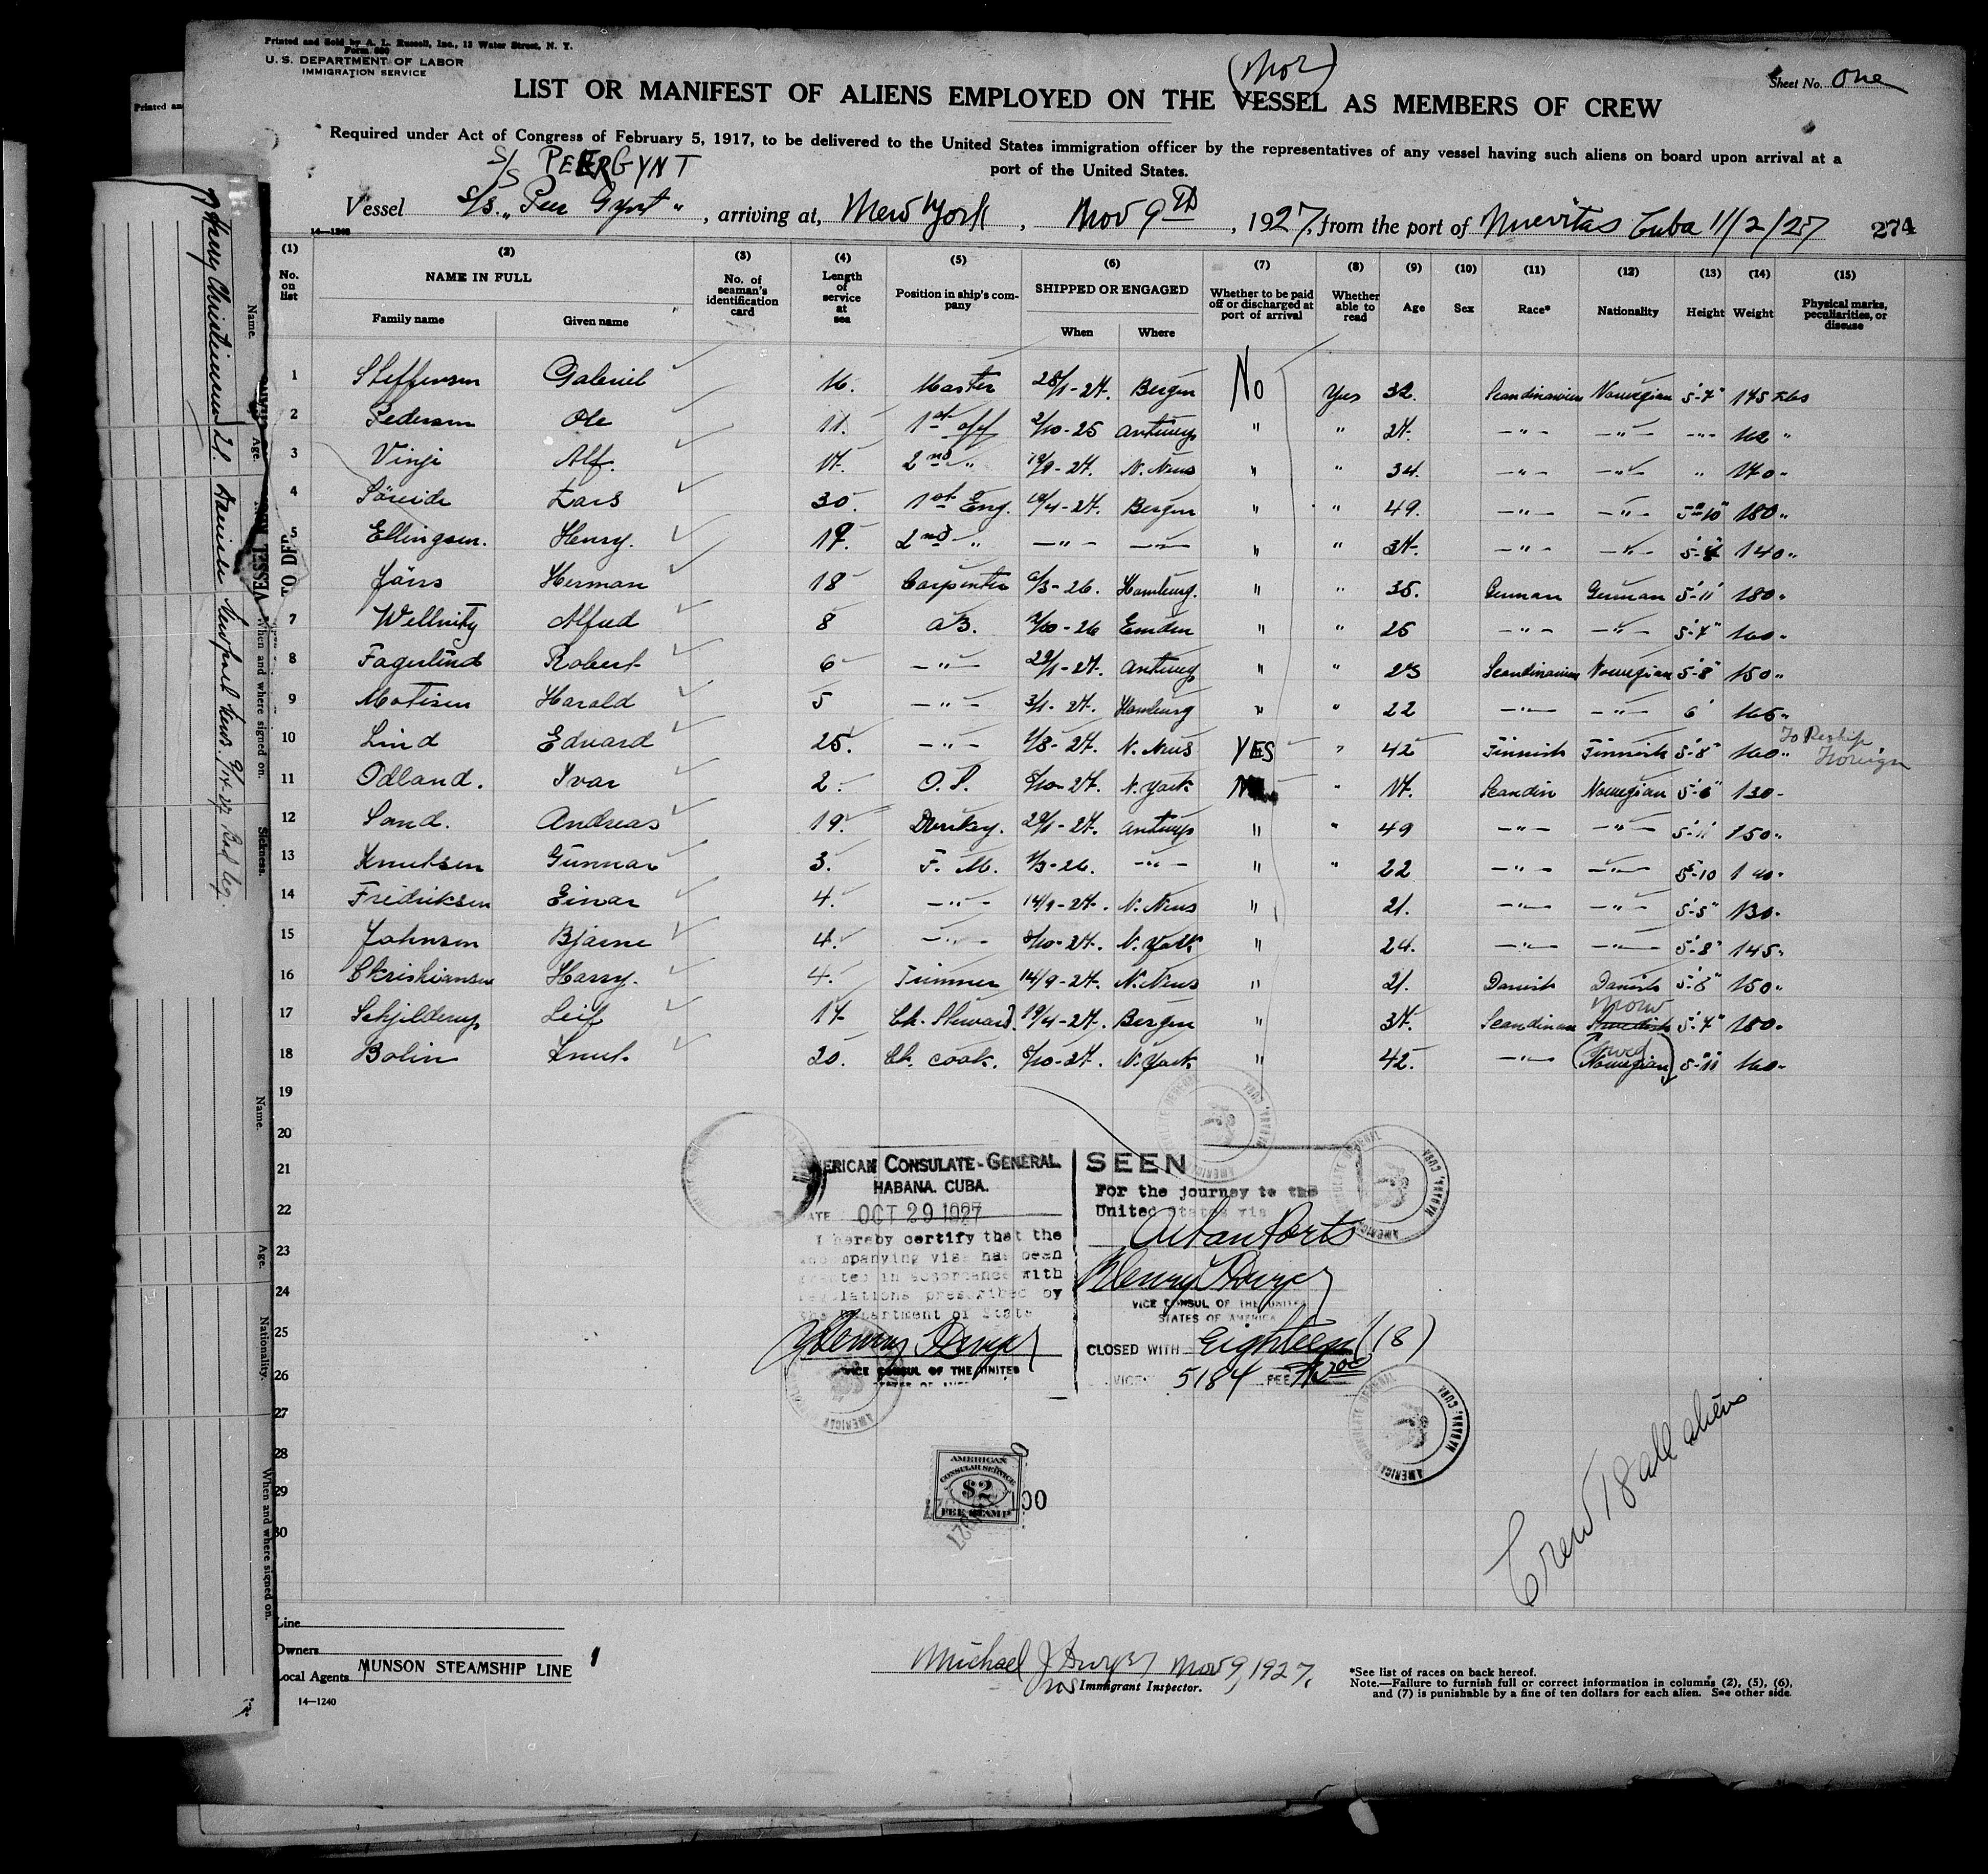 Printed and Sold by A. L. Russell, Inc., 13 Water Street, N. Y.
Form 680
U. S. DEPARTMENT OF LABOR
IMMIGRATION SERVICE
(Nor)
Sheet No. One
LIST OR MANIFEST OF ALIENS EMPLOYED ON THE VESSEL AS MEMBERS OF CREW
Required under Act of Congress of February 5, 1917, to be delivered to the United States immigration officer by the representatives of any vessel having such aliens on board upon arrival at a
port of the United States.
S/S PEERGYNT
Vessel S/S. „Peer Gynt", arriving at, New York, Nov 9th, 1927, from the port of Nuevitas Cuba 11/2/27 274
14—1240
(1) (2) (3) (4) (5) (6) (7) (8) (9) (10) (11) (12) (13) (14) (15)
No. on list NAME IN FULL Family name Given name No. of seaman's identification card Length of service at sea Position in ship's company SHIPPED OR ENGAGED When Where Whether to be paid off or discharged at port of arrival Whether able to read Age Sex Race* Nationality Height Weight Physical marks, peculiarities, or disease
1 Steffensen Gabriel 16. Master 28/1-27. Bergen No Yes 32. Scandinavien Norwegian 5'-7" 145 Lbs
2 Pedersen Ole 11. 1st off 2/10-25 Antwerp " " 27. -"- -"- -"- 162 "
3 Vinje Alf. 17. 2nd " 14/9-27. N. News " " 34. -"- -"- " 170 "
4 Söreide Lars 30. 1st Eng. 19/4-27. Bergen " " 49. -"- -"- 5'-10" 180 "
5 Ellingsen. Henry. 19. 2nd " -"- -"- " " 37. -"- -"- 140 "
6 Järs Herman 18 Carpenter 6/3-26. Hamburg. " " 35. German German 5'-11" 180 "
7 Alfred 8 AB. 2/10-26 Emden " " 25 -"- -"- 5'-7" 160 "
8 Fagerlund Robert 6 -"- 29/1-27. Antwerp " " 23 Scandinavien Norwegian 5'-8" 150 "
9 Matisen Harald 5 -"- 3/1-27. Hamburg " " 22 -"- -"- 6' 165 "
10 Lind Edvard 25. -"- 1/8-27. N. News YES " 42 Finnish Finnish 5'-8" 160 " To Reship Foreign
11 Odland. Ivar 2. O.S. 8/10-27. N. York " 17. Scandin Norwegian 5'-6" 130 -
12 Sand. Andreas 19. Dunkey. 29/1-27. Antwerp " " 49 -"- -"- 5'-11" 150 "
13 Knutsen Gunnar 3. F. M. 4/3-26. -"- " " 22 -"- -"- 5'-10 140 "
14 Fredriksen Einar 4. -"- 14/9-27. N. News " 21. -"- -"- 5'-5" 130 "
15 Johnsen Bjarne 4. -"- 8/10-27. N. York " 24. -"- -"- 5'-8" 145 "
16 Christiansen Harry. 4. Trimmer 14/9-27. N. News " 21. Danish Danish 5'-8" 150 "
17 Schjelderup Leif 17 Ch. Steward. 19/4-27. Bergen " 37. Scandinav Norw Swedish 5'-7" 180 "
18 Bolin Knut. 20. Ch. cook. 8/10-27. N. York " 42. -"- (Swed Norwegian) 5'-11" 160 "
19
20
21
22
23
24
25
26
27
28
29
30
AMERICAN CONSULATE-GENERAL
HABANA. CUBA.
DATE OCT 29 1927
I hereby certify that the
accompanying visa has been
granted in accordance with
regulations prescribed by
the Department of State
VICE CONSUL OF THE UNITED
STATES OF AMERICA
SEEN
For the journey to the
United States via
Cuban Ports
VICE CONSUL OF THE UNITED
STATES OF AMERICA
CLOSED WITH Eighteen (18)
5184 FEE
AMERICAN
CONSULAR SERVICE
$2
FEE STAMP
100
Crew 18 all aliens
Line
Owners
Local Agents MUNSON STEAMSHIP LINE
14—1240
Michael J Dwyer Nov 9, 1927.
Immigrant Inspector.
*See list of races on back hereof.
Note.—Failure to furnish full or correct information in columns (2), (5), (6),
and (7) is punishable by a fine of ten dollars for each alien. See other side.
Name. Age. When and where signed on. Sickness.
Harry Christiansen 21. Danish Newport News. 9/14-27 Bad leg.
VESSEL
Name. Age. Nationality. When and where signed on.